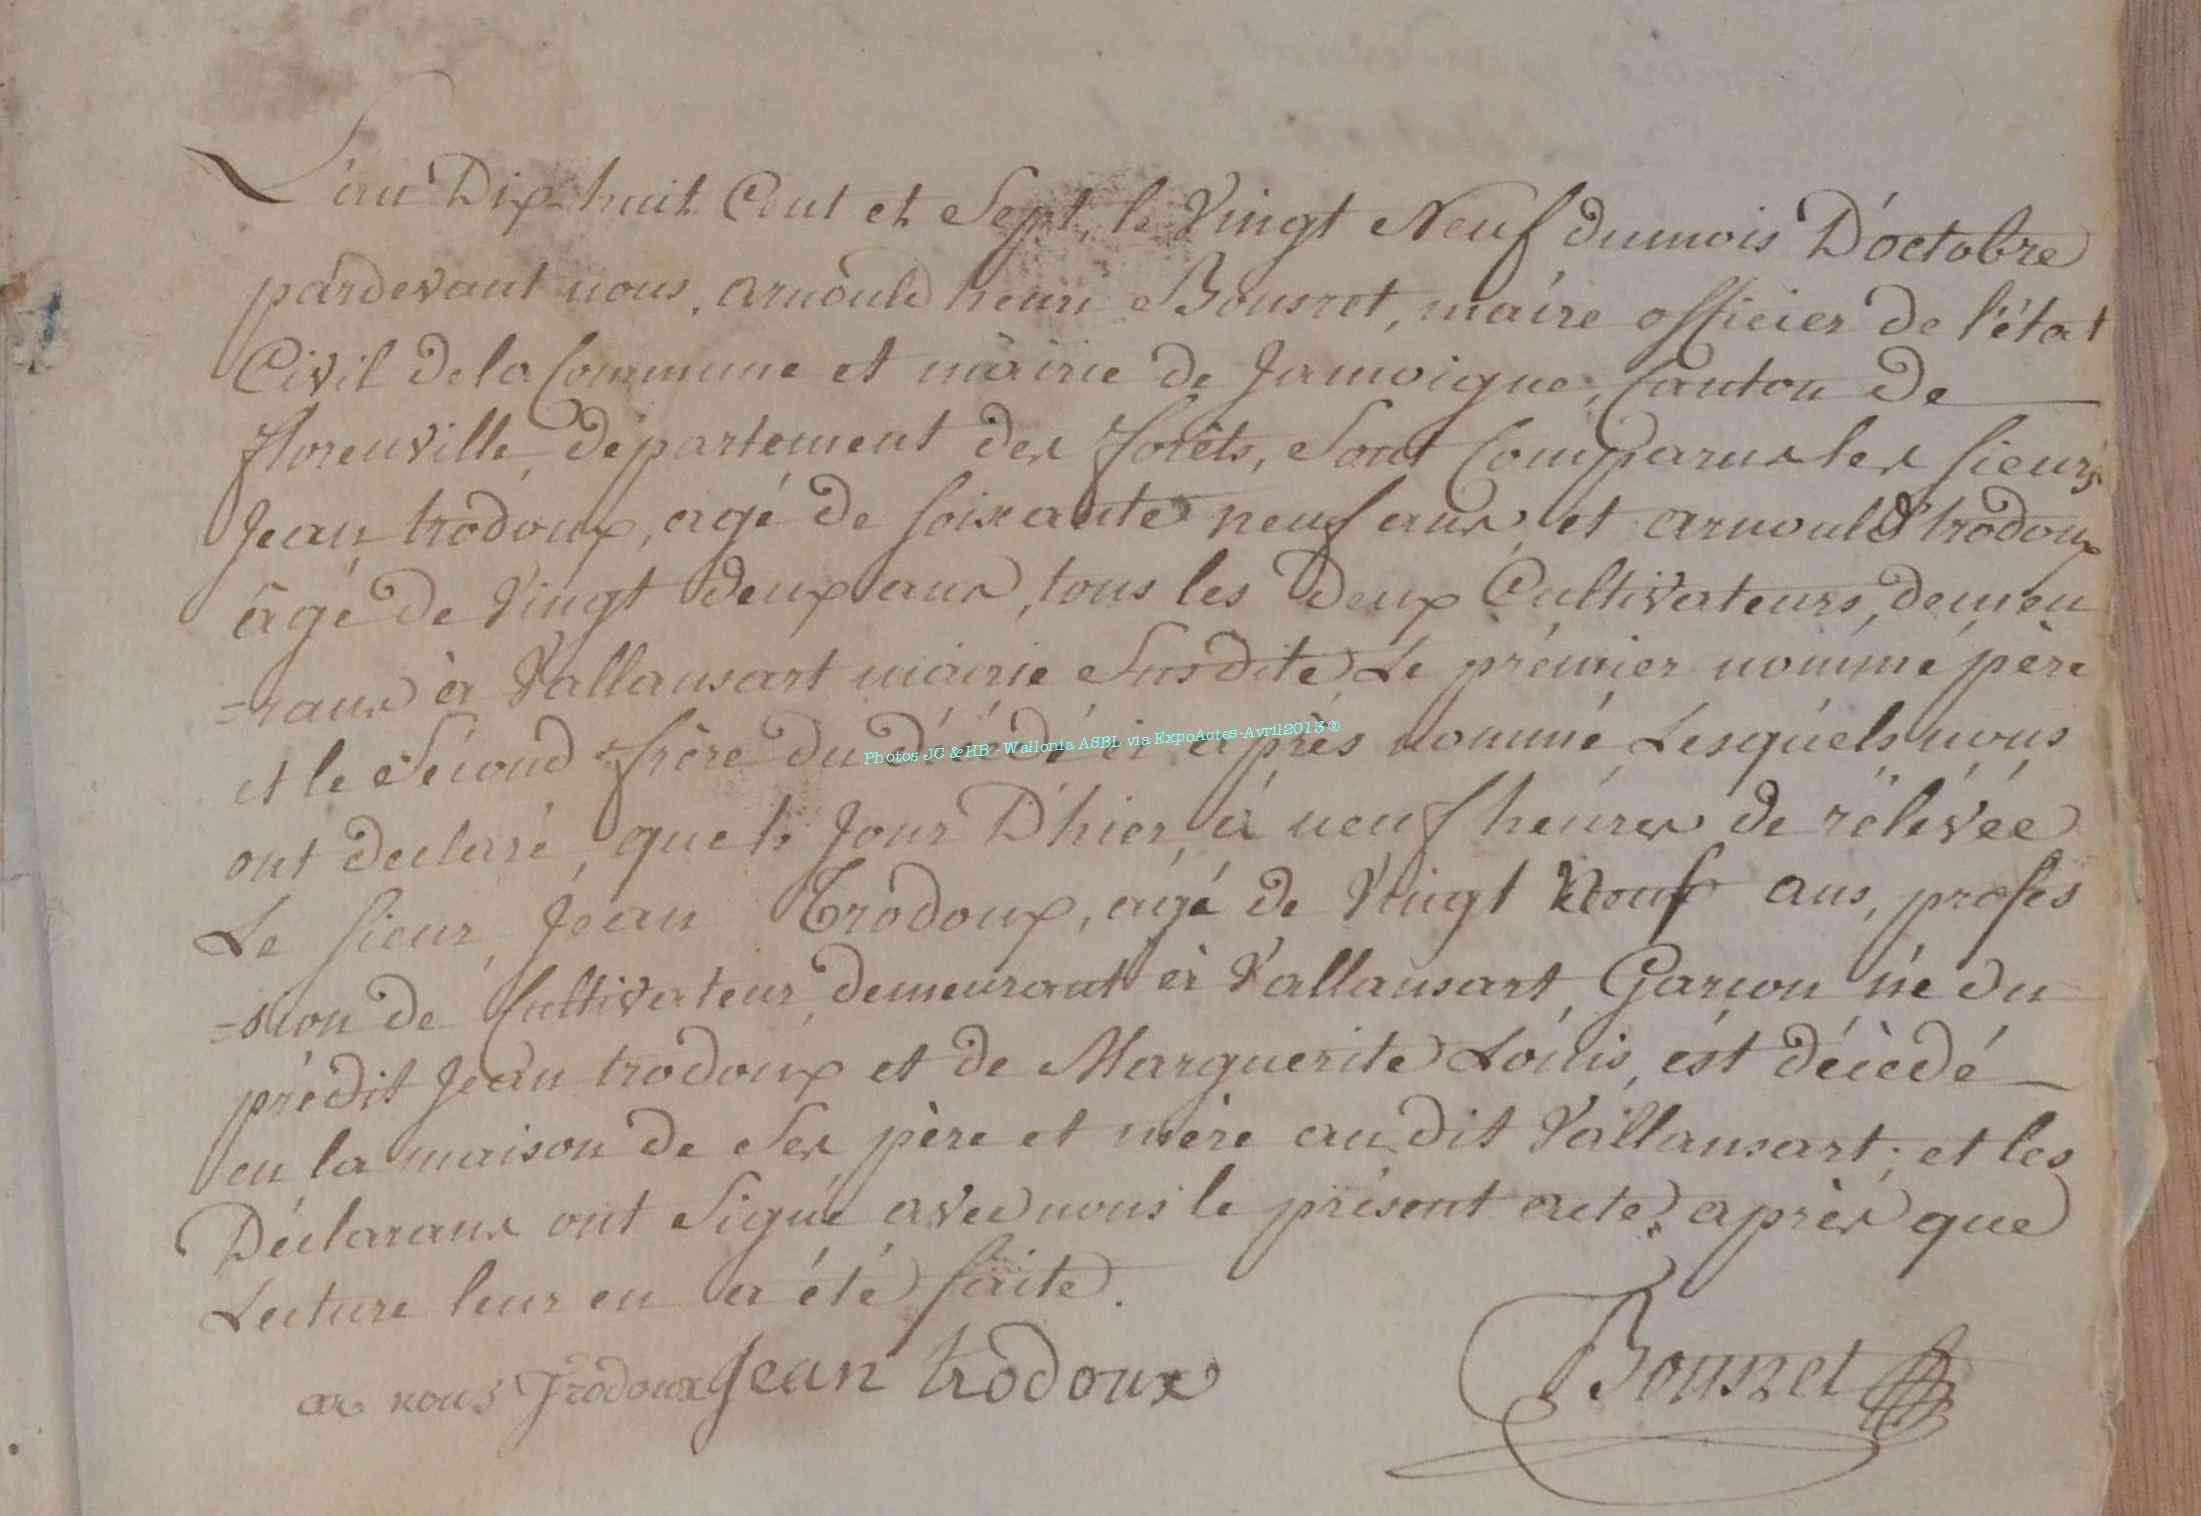 L'an Dix-huit Cent et Sept, le Vingt Neuf du mois D'octobre
pardevant nous, arnould henri Bousret, maire officier de l'état
Civil de la Commune et mairie de Jamoigne, Canton de
florenville, département des forêts, Sont Comparus les sieurs
Jean trodoux, agé de soixante neuf ans, et arnould trodoux
âgé de Vingt deux ans, tous les Deux Cultivateurs, demeu
=rans à Vallansart mairie Susdite, Le prémier nommé père
et le Second frère du décédé ci après nommé, Lesquéls nous
Photos JC & HB - Wallonia ASBL via ExpoActes-Avril2013®
ont declaré, que le Jour D'hier, à neuf heures de rélévée
Le sieur, Jean Trodoux, agé de Vingt Neuf ans, profes
=sion de Cultivateur, demeurant à Vallansart, Garcon né du
prédit Jean trodoux et de Marguerite Louis, est décédé
en la maison de Ses père et mère au dit Vallansart; et les
Déclarans ont Signé avec nous le présent acte, après que
Lecture leur en a été faite.
ar nous Trodoux Jean trodoux Bousret